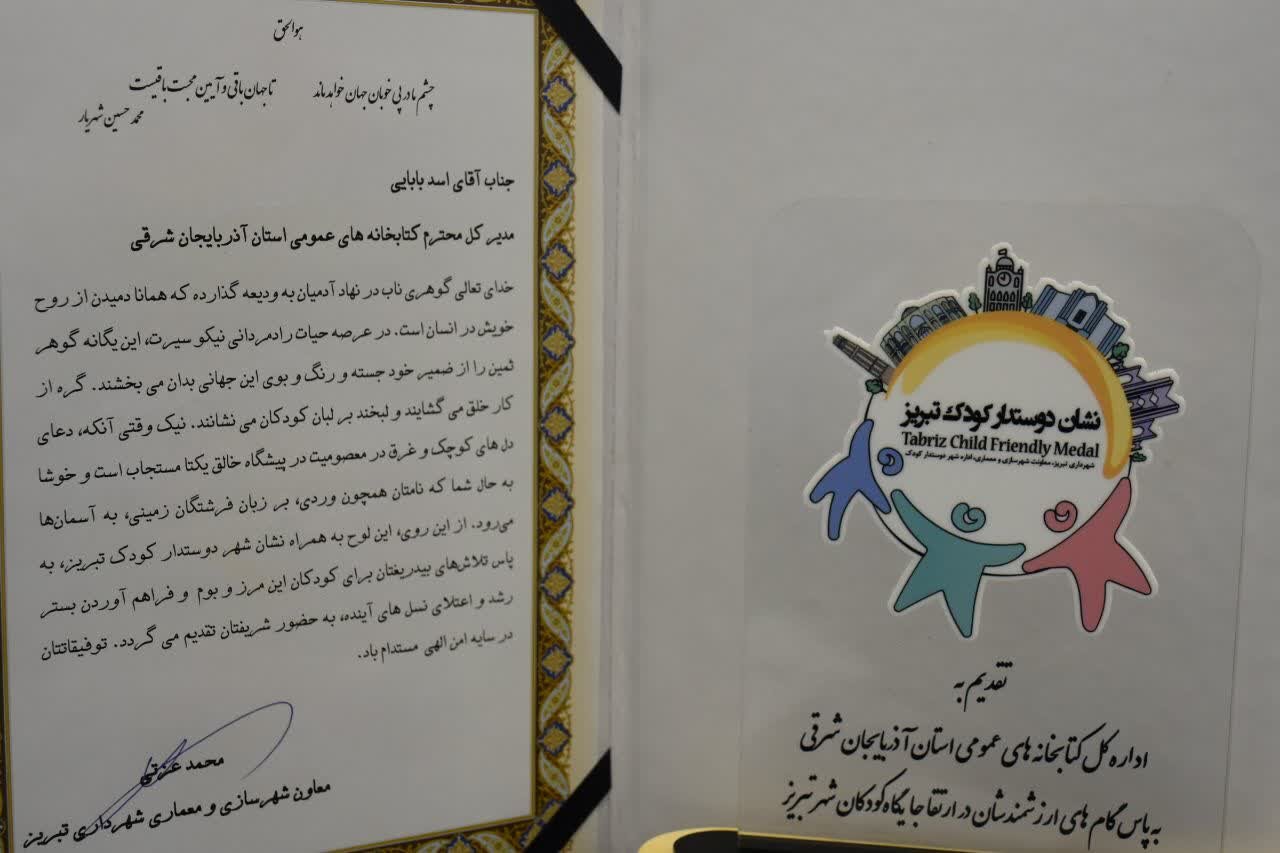 هوالحق
چشم ما در پی خوبان جهان خواهد ماند تا جهان باقی و آیین محبت باقیست
محمد حسین شهریار
جناب آقای اسد بابایی
مدیر کل محترم کتابخانه های عمومی استان آذربایجان شرقی
خدای تعالی گوهری ناب در نهاد آدمیان به ودیعه گذارده که همانا دمیدن از روح
خویش در انسان است. در عرصه حیات رادمردانی نیکو سیرت، این یگانه گوهر
ثمین را از ضمیر خود جسته و رنگ و بوی این جهانی بدان می بخشند. گره از
کار خلق می گشایند و لبخند بر لبان کودکان می نشانند. نیک وقتی آنکه، دعای
دل های کوچک و غرق در معصومیت در پیشگاه خالق یکتا مستجاب است و خوشا
به حال شما که نامتان همچون وردی، بر زبان فرشتگان زمینی، به آسمان‌ها
می‌رود. از این روی، این لوح به همراه نشان شهر دوستدار کودک تبریز، به
پاس تلاش‌های بیدریغتان برای کودکان این مرز و بوم و فراهم آوردن بستر
رشد و اعتلای نسل های آینده، به حضور شریفتان تقدیم می گردد. توفیقاتتان
در سایه امن الهی مستدام باد.
محمد عزتی
معاون شهرسازی و معماری شهرداری تبریز
نشان دوستدار کودک تبریز
Tabriz Child Friendly Medal
شهرداری تبریز، معاونت شهرسازی و معماری، اداره شهر دوستدار کودک
تقدیم به
اداره کل کتابخانه های عمومی استان آذربایجان شرقی
به پاس گام های ارزشمندشان در ارتقا جایگاه کودکان شهر تبریز